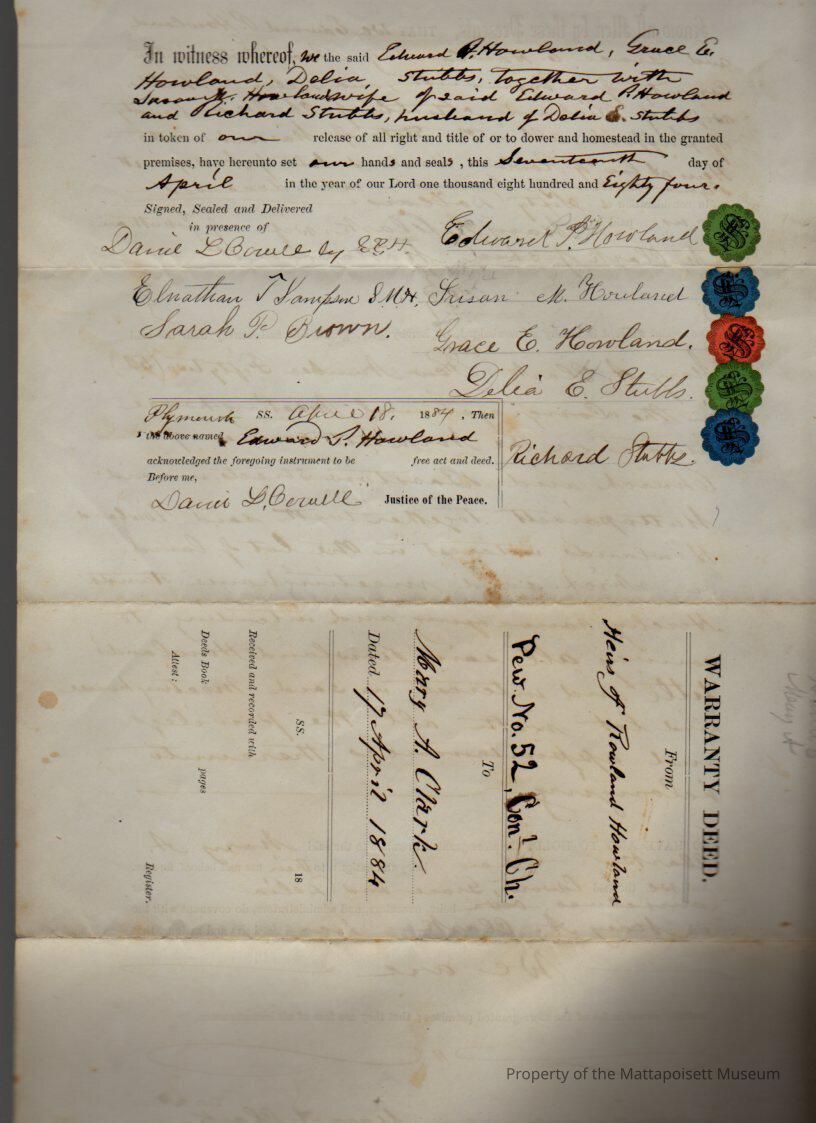 In witness whereof, we the said Edward P. Howland, Grace E.
Howland, Delia Stubbs, together with
Susan M. Howland wife of said Edward P. Howland
and Richard Stubbs, husband of Delia E. Stubbs
in token of our release of all right and title of or to dower and homestead in the granted
premises, have hereunto set our hands and seals, this Seventeenth day of
April in the year of our Lord one thousand eight hundred and Eighty four.
Signed, Sealed and Delivered
in presence of
Edward P. Howland
by E.P.H.
Elnathan T Sampson S M H,
Susan M. Howland
Sarah P. Brown.
Grace E. Howland.
Delia E. Stubbs.
Plymouth SS. April 18. 1884, Then
the above named Edward P. Howland
acknowledged the foregoing instrument to be free act and deed.
Richard Stubbs.
Before me,
Justice of the Peace.
WARRANTY DEED.
From
Heirs of Rowland Howland
To
Pew No. 52, Con'. Ch.
Mary A. Clark.
Dated 17 April 1884
SS. 18
Received and recorded with
Deeds Book pages
Attest:
Register.
Property of the Mattapoisett Museum